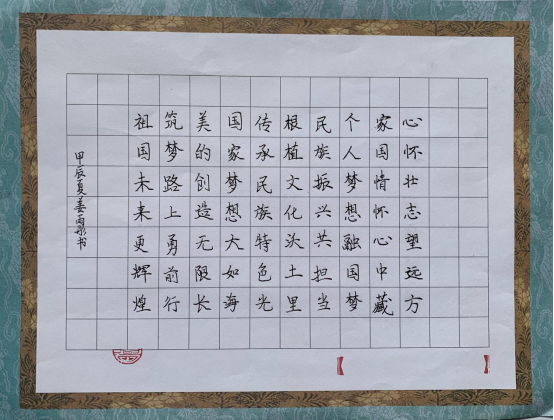 心怀壮志望远方
家国情怀心中藏
个人梦想融国梦
民族振兴共担当
根植文化沃土里
传承民族特色光
国家梦想大如海
美的创造无限长
筑梦路上勇前行
祖国未来更辉煌
甲辰夏姜丙泉书